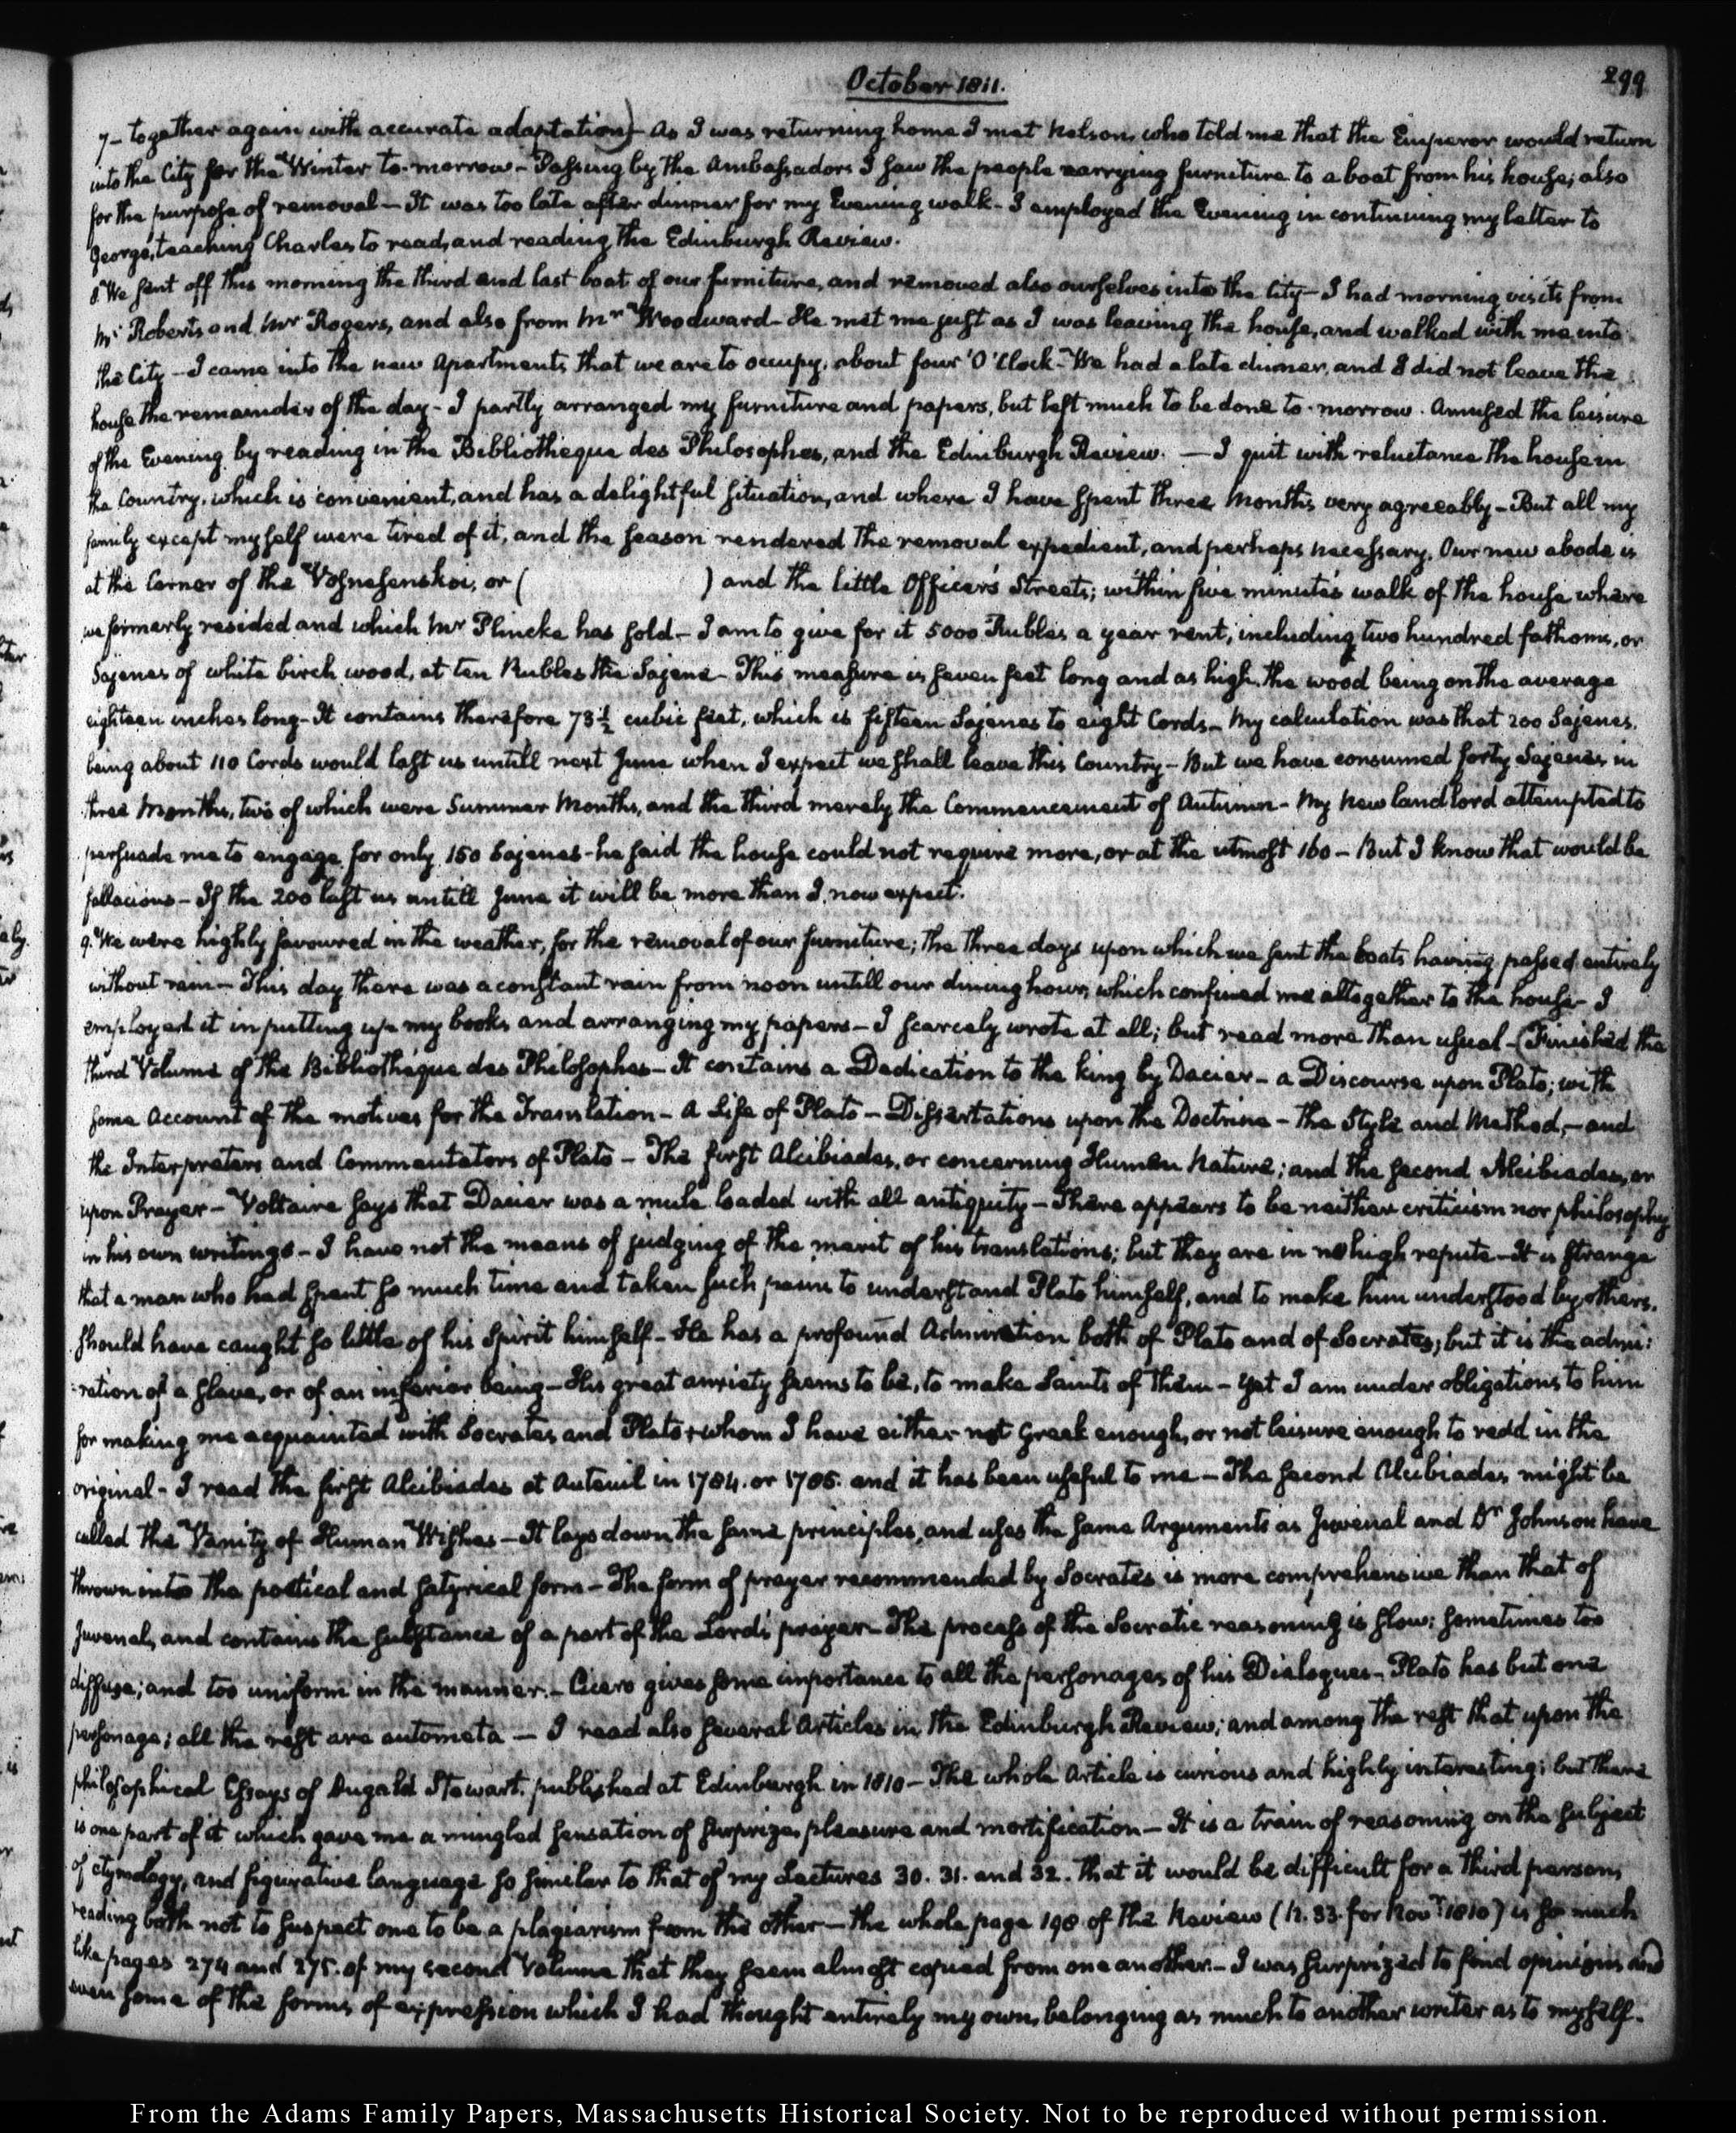 October 1811.
299
7- together again with accurate adaptation)- As I was returning home I met Nelson, who told me that the Emperor would return
into the City for the Winter to-morrow- Passing by the Ambassadors I saw the people carrying furniture to a boat from his house; also
for the purpose of removal- It was too late after dinner for my Evening walk- I employed the Evening in continuing my letter to
George, teaching Charles to read, and reading the Edinburgh Review.
8. We sent off this morning the third and last boat of our furniture, and removed also ourselves into the City- I had morning visits from
Mr Roberts and Mr Rogers, and also from Mr Woodward- He met me just as I was leaving the house, and walked with me into
the City- I came into the new Apartments that we are to occupy, about four O'Clock- We had a late dinner, and I did not leave the
house the remainder of the day- I partly arranged my furniture and papers, but left much to be done to-morrow. Amused the leisure
of the Evening by reading in the Bibliotheque des Philosophes, and the Edinburgh Review. — I quit with reluctance the house in
the Country, which is convenient, and has a delightful situation, and where I have spent three Months very agreeably- But all my
family except myself were tired of it, and the season rendered the removal expedient, and perhaps necessary. Our new abode is
at the Corner of the Vosnesenskoi, or ( ) and the little Officer's Streets; within five minute's walk of the house where
we formerly resided and which Mr Plincke has sold- I am to give for it 5000 Rubles a year rent, including two hundred fathoms, or
Sajenes of white birch wood, at ten Rubles the Sajene- This measure is seven feet long and as high, the wood being on the average
eighteen inches long- It contains therefore 73½ cubic feet, which is fifteen Sajenes to eight Cords- My calculation was that 200 Sajenes,
being about 110 Cords would last us untill next June when I expect we shall leave this Country- But we have consumed forty Sajenes in
three Months, two of which were Summer Months, and the third merely the Commencement of Autumn- My new landlord attempted to
persuade me to engage for only 150 Sajenes- he said the house could not require more, or at the utmost 160- But I know that would be
fallacious- If the 200 last us untill June it will be more than I now expect.
9. We were highly favoured in the weather, for the removal of our furniture; the three days upon which we sent the boats having passed entirely
without rain- This day there was a constant rain from noon untill our dining hour, which confined me altogether to the house- I
employed it in putting up my books and arranging my papers- I scarcely wrote at all; but read more than usual- (Finished the
third Volume of the Bibliothéque des Philosophes- It contains a Dedication to the king by Dacier- a Discourse upon Plato; with
some Account of the motives for the Translation- A Life of Plato- Dissertations upon the Doctrine- the Style and Method,- and
the Interpreters and Commentators of Plato- The first Alcibiades, or concerning Human Nature; and the second Alcibiades, or
upon Prayer- Voltaire says that Dacier was a mule loaded with all antiquity- There appears to be neither criticism nor philosophy
in his own writings- I have not the means of judging of the merit of his translations; but they are in no high repute- It is strange
that a man who had spent so much time and taken such pains to understand Plato himself, and to make him understood by others,
should have caught so little of his Spirit himself- He has a profound Admiration both of Plato and of Socrates; but it is the admi:
:ration of a slave, or of an inferior being- His great anxiety seems to be, to make Saints of them- Yet I am under obligations to him
for making me acquainted with Socrates and Plato, whom I have either not Greek enough, or not leisure enough to read in the
original- I read the first Alcibiades at Auteuil in 1784. or 1785. and it has been useful to me- The second Alcibiades might be
called the Vanity of Human Wishes- It lays down the same principles, and uses the same Arguments as Juvenal and Dr Johnson have
thrown into the poetical and satyrical form- The form of prayer recommended by Socrates is more comprehensive than that of
Juvenal, and contains the substance of a part of the Lord's prayer- The process of the Socratic reasoning is slow; sometimes too
diffuse; and too uniform in the manner- Cicero gives some importance to all the personages of his Dialogues- Plato has but one
personage; all the rest are automata — I read also several Articles in the Edinburgh Review; and among the rest that upon the
philosophical Essays of Dugald Stewart, published at Edinburgh in 1810- The whole Article is curious and highly interesting; but there
is one part of it which gave me a mingled sensation of surprize, pleasure and mortification- It is a train of reasoning on the subject
of etymology, and figurative language so similar to that of my Lectures 30. 31. and 32. that it would be difficult for a third person,
reading both not to suspect one to be a plagiarism from the other- the whole page 198 of the Review (N. 33. for Novr 1810) is so much
like pages 274 and 275. of my second Volume that they seem almost copied from one another- I was surprized to find opinions and
even some of the forms of expression which I had thought entirely my own, belonging as much to another writer as to myself.
From the Adams Family Papers, Massachusetts Historical Society. Not to be reproduced without permission.